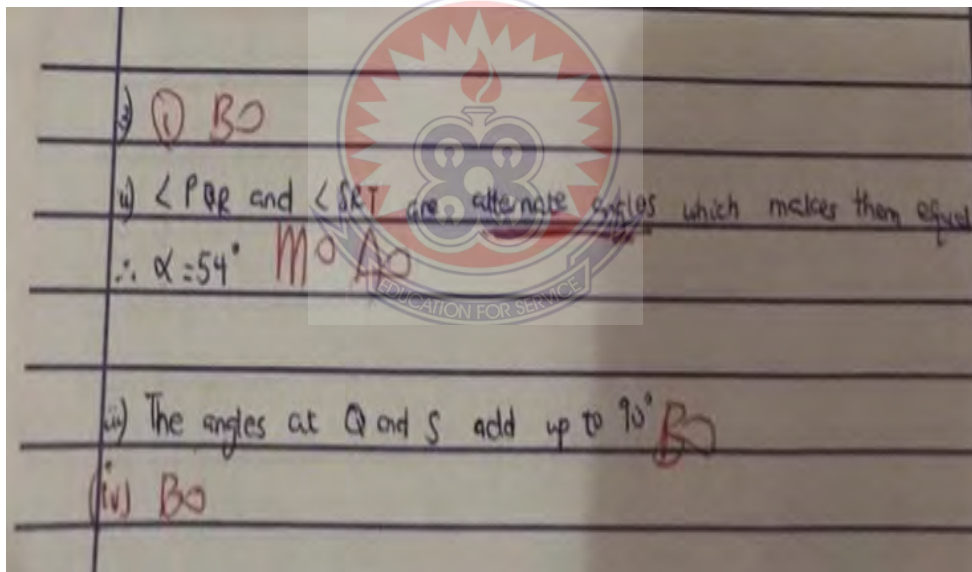 i) B0
ii) <PQR and <SRT are alternate angles which makes them equal
∴ α = 54° M0 A0
EDUCATION FOR SERVICE
iii) The angles at Q and S add up to 90° B0
(iv) B0